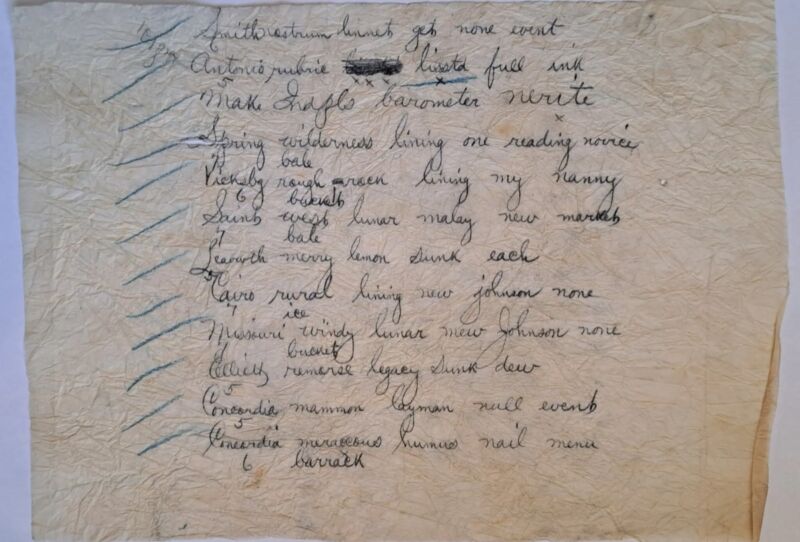 Smith nostrum linnet get none event
Antonio rubric lissta full ink
5
Make Indpls barometer nerite
Spring wilderness lining one reading novice
7 bale
Vicksbg rough rock lining my nanny
6 bucket
Saints west lunar malay new markets
7 bale
Leavwth merry lemon sunk each
5
Cairo rural lining new johnson none
7 ice
Missouri windy lunar mew Johnson none
bucket
Elliott remorse legacy sunk dew
5
Concordia mammon layman null event
5
Concordia meraccous humus nail menu
6 barrack